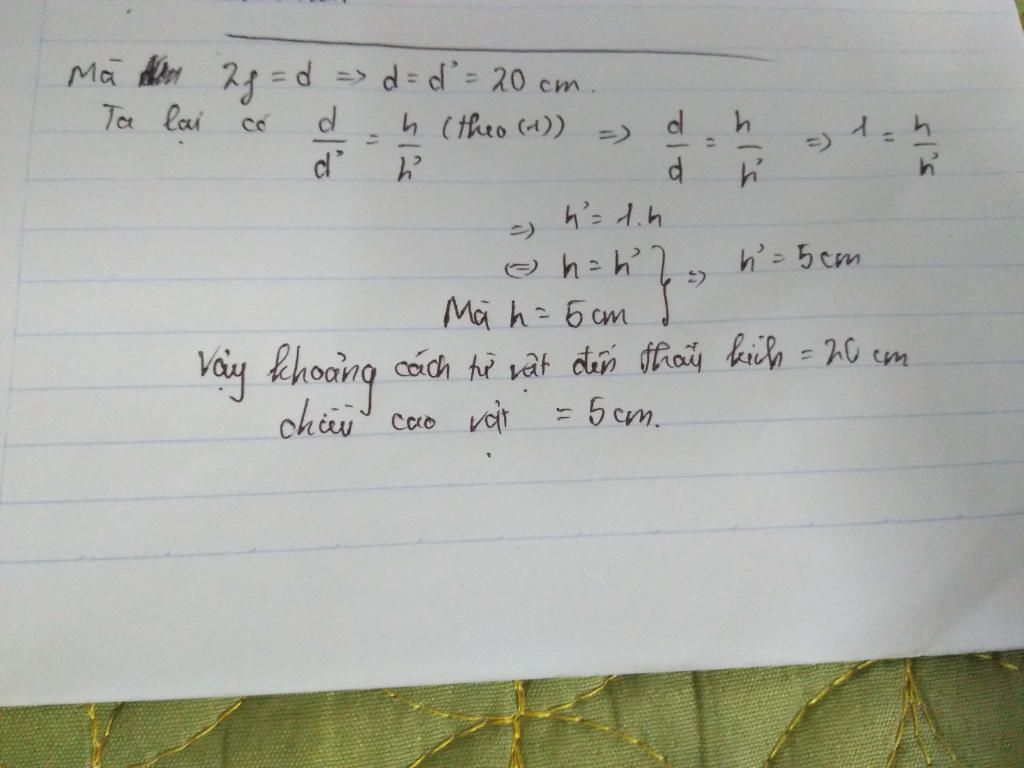 Mà 2f = d => d = d' = 20 cm.
Ta lại có d/d' = h/h' (theo (1)) => d/d = h/h' => 1 = h/h'
=> h' = 1.h
<=> h = h' } => h' = 5 cm
Mà h = 5 cm
Vậy khoảng cách từ vật đến thấu kính = 20 cm
chiều cao vật = 5 cm.